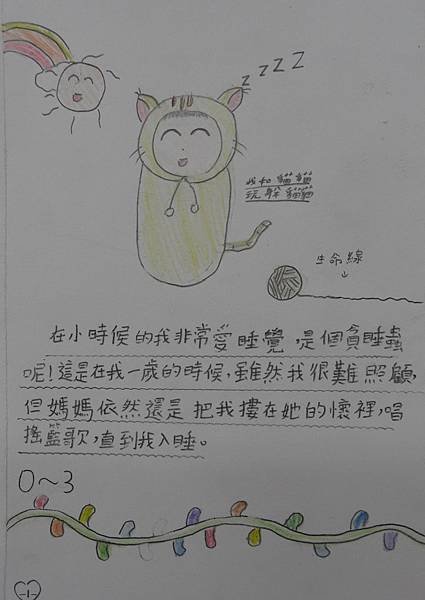 zzzz
我和貓貓
玩躲貓貓
生命線
在小時候的我非常愛睡覺,是個貪睡蟲
呢!這是在我一歲的時候,雖然我很難照顧,
但媽媽依然還是把我摟在她的懷裡,唱
搖籃歌,直到我入睡。
0~3
-1-